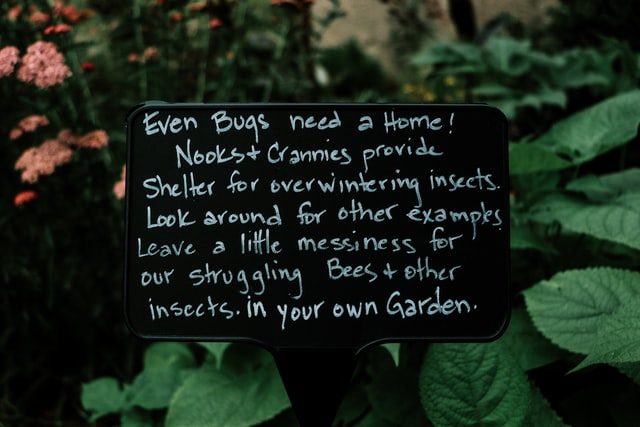 Even Bugs need a Home!
Nooks + Crannies provide
Shelter for overwintering insects.
Look around for other examples
Leave a little messiness for
our struggling Bees + other
insects. in your own Garden.